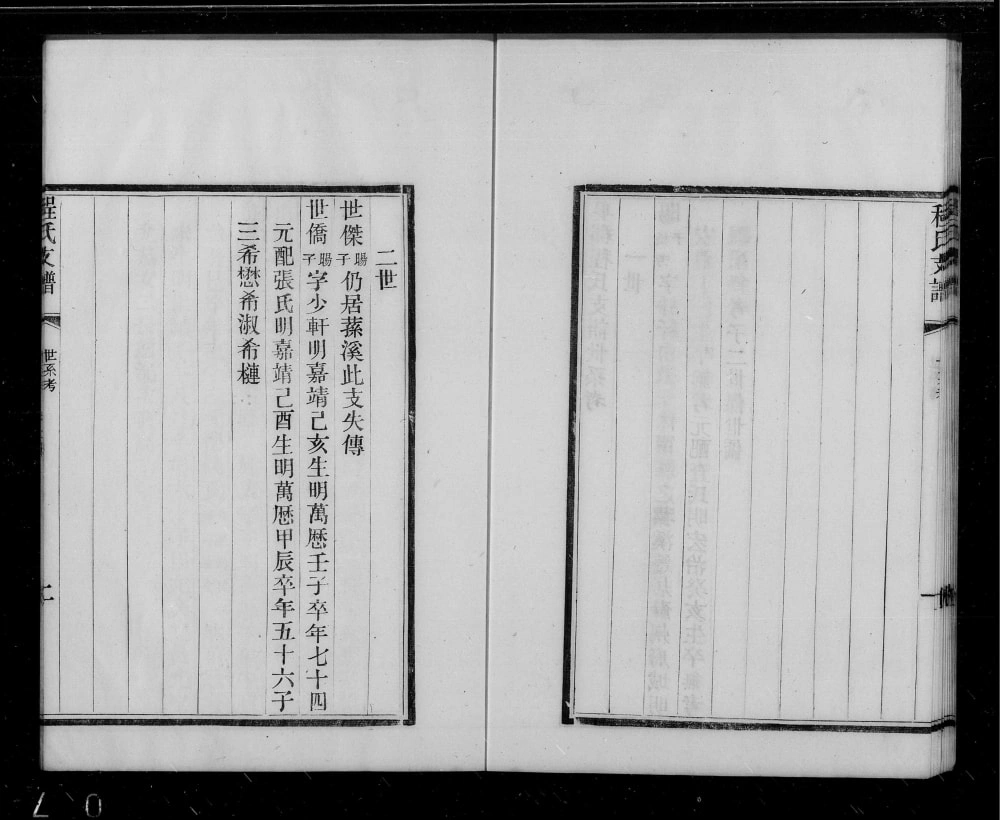 程氏支譜
二世
世傑暘子仍居蓀溪此支失傳
世僑暘子字少軒明嘉靖己亥生明萬曆壬子卒年七十四
元配張氏明嘉靖己酉生明萬曆甲辰卒年五十六子
三希懋希淑希槤
程氏支譜
世系考
二